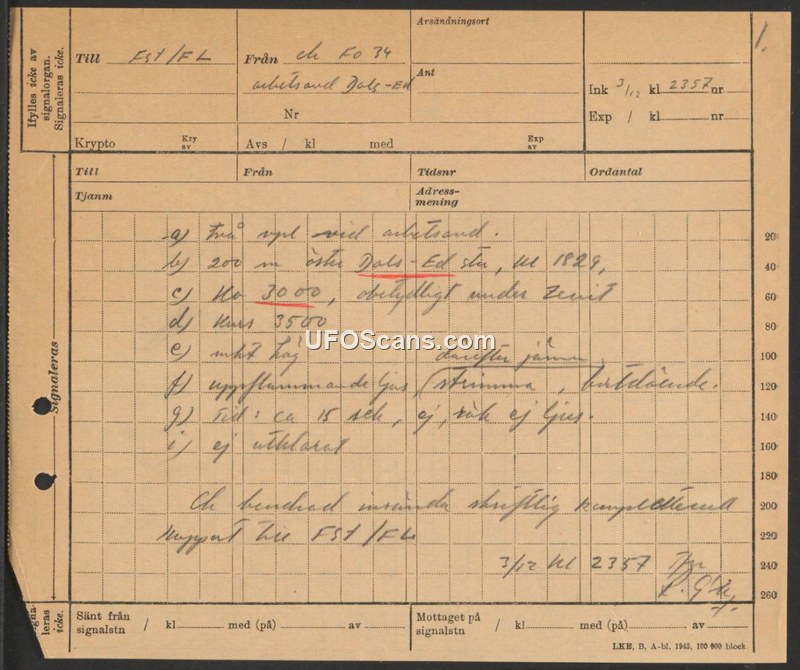 Ifylles icke av signalorgan. Signaleras icke.
Till Fst/FL
Från ch Fo 34
arbetsavd Dals-Ed
Nr
Krypto
Kry av
Avs / kl med
Avsändningsort
Ant
Exp av
Ink 3/12 kl 2357 nr
Exp / kl nr
1.
Till
Från
Tidsnr
Ordantal
Tjanm
Adress-
mening
Signaleras
a) Två vpl vid arbetsavd. 20
b) 200 m öster Dals-Ed stn, kl 1829, 40
c) Hö 3000, obetydligt under Zenit 60
d) Kurs 3500 80
UFOScans.com
e) mkt hög därefter jämn 100
f) uppflammande ljus, strimma, bortdöende. 120
g) Tid: ca 15 sek, ej rök ej ljus. 140
i) ej utklarat 160
180
Ch beordrad insända skriftlig 200
Rapport till FSt/FL 220
3/12 kl 2357 240
260
Signa-
leras
icke.
Sänt från
signalstn / kl med (på) av
Mottaget på
signalstn / kl med (på) av
LKB, B, A-bl. 1943, 100 000 block.